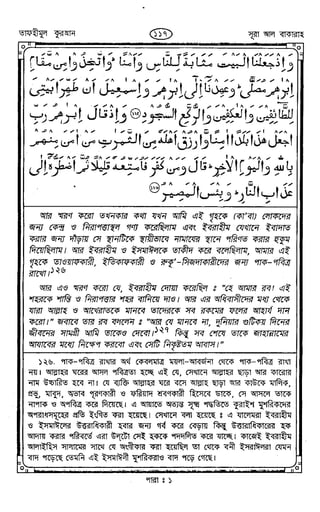 তাফহীমুল কুরআন
১১৭
সূরা আল বাকারাহ
وَإِذْ جَعَلْنَا الْبَيْتَ مَثَابَةً لِّلنَّاسِ وَأَمْنًا ۖ وَاتَّخِذُوا مِن مَّقَامِ
إِبْرٰهِمَ مُصَلًّى ۖ وَعَهِدْنَا إِلٰى إِبْرٰهِمَ وَإِسْمٰعِيلَ أَن طَهِّرَا بَيْتِيَ
لِلطَّائِفِينَ وَالْعٰكِفِينَ وَالرُّكَّعِ السُّجُودِ وَإِذْ قَالَ إِبْرٰهِمُ رَبِّ
اجْعَلْ هٰذَا بَلَدًا اٰمِنًا وَّارْزُقْ أَهْلَهُ مِنَ الثَّمَرٰتِ مَنْ اٰمَنَ مِنْهُم
بِاللّٰهِ وَالْيَوْمِ الْاٰخِرِ ۖ قَالَ وَمَن كَفَرَ فَأُمَتِّعُهُ قَلِيلًا ثُمَّ أَضْطَرُّهُ إِلٰى
عَذَابِ النَّارِ ۖ وَبِئْسَ الْمَصِيرُ
আর স্মরণ করো তখনকার কথা যখন আমি এই গৃহকে (কা'বা) লোকদের
জন্য কেন্দ্র ও নিরাপত্তাস্থল গণ্য করেছিলাম এবং ইবরাহীম যেখানে ইবাদাত
করার জন্য দাঁড়ায় সে স্থানটিকে স্থায়ীভাবে নামাযের স্থানে পরিণত করার হুকুম
দিয়েছিলাম। আর ইবরাহীম ও ইসমাঈলকে তাকীদ করে বলেছিলাম, আমার এই
গৃহকে তাওয়াফকারী, ইতিকাফকারী ও রুকূ'-সিজদাকারীদের জন্য পাক-পবিত্র
রাখো।১২৬
আর এও স্মরণ করো যে, ইবরাহীম দোয়া করেছিল ঃ "হে আমার রব! এই
শহরকে শান্তি ও নিরাপত্তার শহর বানিয়ে দাও। আর এর অধিবাসীদের মধ্য থেকে
যারা আল্লাহ ও আখেরাতকে মানবে তাদেরকে সব রকমের ফলের আহার্য দান
করো।" জবাবে তার রব বললেন ঃ "আর যে মানবে না, দুনিয়ার গুটিকয় দিনের
জীবনের সামগ্রী আমি তাকেও দেবো।১২৭ কিন্তু সব শেষে তাকে জাহান্নামের
আযাবের মধ্যে নিক্ষেপ করবো এবং সেটি নিকৃষ্টতম আবাস।"
১২৬. পাক-পবিত্র রাখার অর্থ কেবলমাত্র ময়লা-আবর্জনা থেকে পাক-পবিত্র রাখা
নয়। আল্লাহর ঘরের আসল পবিত্রতা হচ্ছে এই যে, সেখানে আল্লাহর ছাড়া আর কারোর
নাম উচ্চারিত হবে না। যে ব্যক্তি আল্লাহর ঘরে বসে আল্লাহ ছাড়া আর কাউকে মালিক,
প্রভু, মাবুদ, অভাব পূরণকারী ও ফরিয়াদ শ্রবণকারী হিসেবে ডাকে, সে আসলে তাকে
নাপাক ও অপবিত্র করে দিয়েছে। এ আয়াতে অত্যন্ত সূক্ষ্ম পদ্ধতিতে কুরাইশ মুশরিকদের
অপরাধসমূহের প্রতি ইংগিত করা হয়েছে। সেখানে বলা হয়েছে ঃ এ যালেমরা ইবরাহীম
ও ইসমাঈলের উত্তরাধিকারী হবার জন্য গর্ব করে বেড়ায় কিন্তু উত্তরাধিকারের হক
আদায় করার পরিবর্তে এরা উল্টো সেই হককে পদদলিত করে যাচ্ছে। কাজেই ইবরাহীম
আলাইহিস সালামের সাথে যে অংগীকার করা হয়েছিল তা থেকে বনী ইসরাঈলরা যেমন
বাদ পড়েছে তেমনি এই ইসমাঈলী মুশরিকরাও বাদ পড়ে গেছে।
পারা ঃ ১